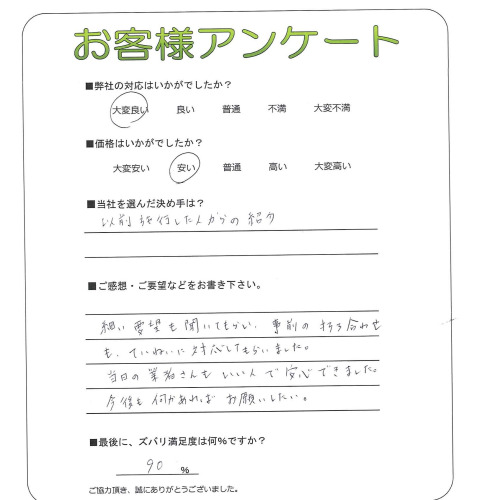 お客様アンケート
■弊社の対応はいかがでしたか?
大変良い 良い 普通 不満 大変不満
■価格はいかがでしたか?
大変安い 安い 普通 高い 大変高い
■当社を選んだ決め手は?
以前施行した人からの紹介
■ご感想・ご要望などをお書き下さい。
細い要望も聞いてもらい、事前の打ち合わせ
も、ていねいに対応してもらいました。
当日の業者さんもいい人で安心できました。
今後も何かあればお願いしたい。
■最後に、ズバリ満足度は何%ですか?
90 %
ご協力頂き、誠にありがとうございました。